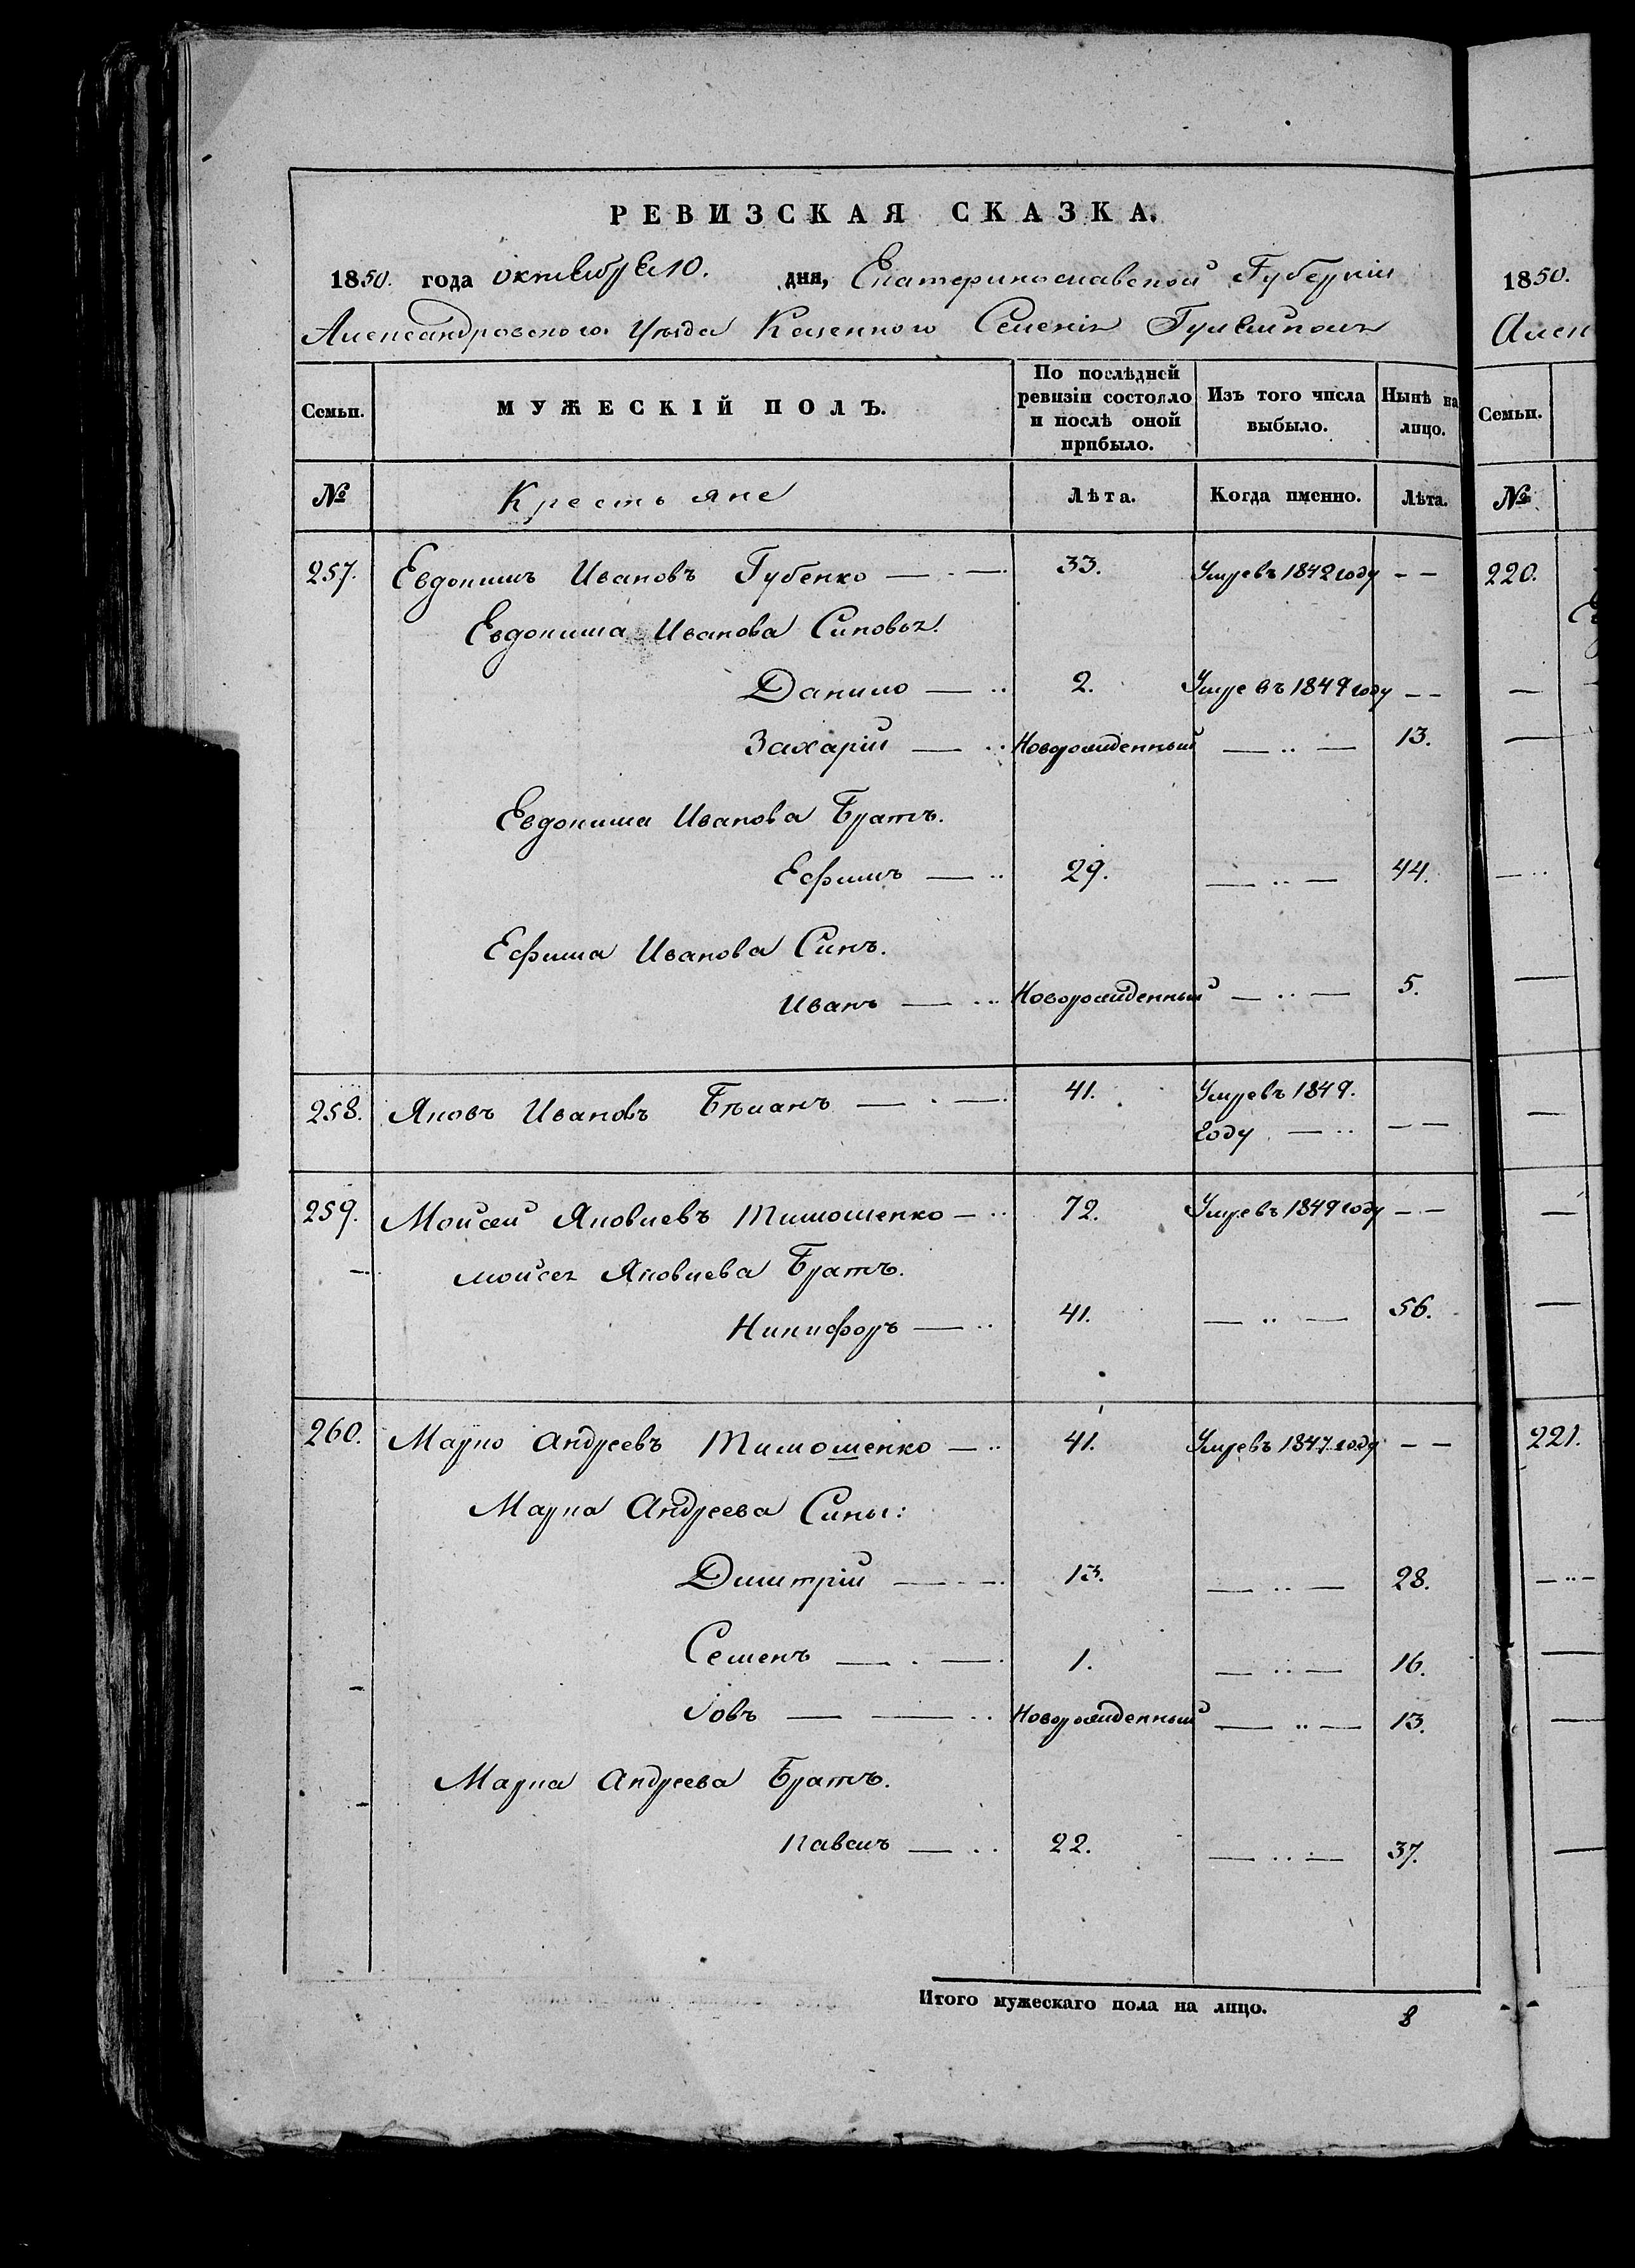 РЕВИЗСКАЯ СКАЗКА.
1850. года октября 10. дня, Екатеринославской Губернии
Александровского Уѣзда Казенного Селенія
Семьи. МУЖЕСКІЙ ПОЛЪ. По послѣдней ревизіи состояло и послѣ оной прибыло. Изъ того числа выбыло. Нынѣ на лицо.
№ Крестьяне Лѣта. Когда именно. Лѣта.
257. Евдокимъ Ивановъ Губенко 33. Умре въ 1842 году
Евдокима Иванова Синовья.
Данило 2. Умре въ 1849 году
Захарій Новорожденный 13.
Евдокима Иванова Братъ.
Ефимъ 29. 44.
Ефима Иванова Синъ.
Иванъ Новорожденный 5.
258. Яковъ Ивановъ Бѣланъ 41. Умре въ 1849.
году
259. Моисей Яковлевъ Тимошенко 72. Умре въ 1849 году
Моисея Яковлева Братъ.
Никифоръ 41. 56.
260. Марко Андреевъ Тимошенко 41. Умре въ 1847 году
Марка Андреева Сины:
Дмитрій 13. 28.
Семенъ 1. 16.
Іовъ Новорожденный 13.
Марка Андреева Братъ.
Павелъ 22. 37.
Итого мужескаго пола на лицо. 8
1850.
Алек
Семьи.
№
220.
221.